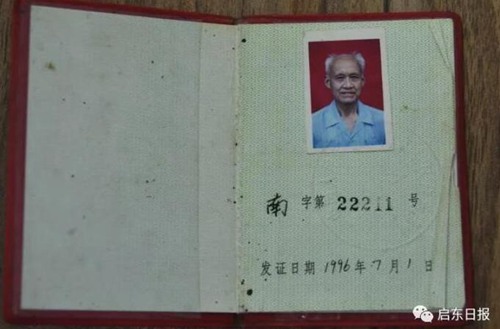 南 字第 22211 号
发证日期 1996 年 7 月 1 日
启东日报